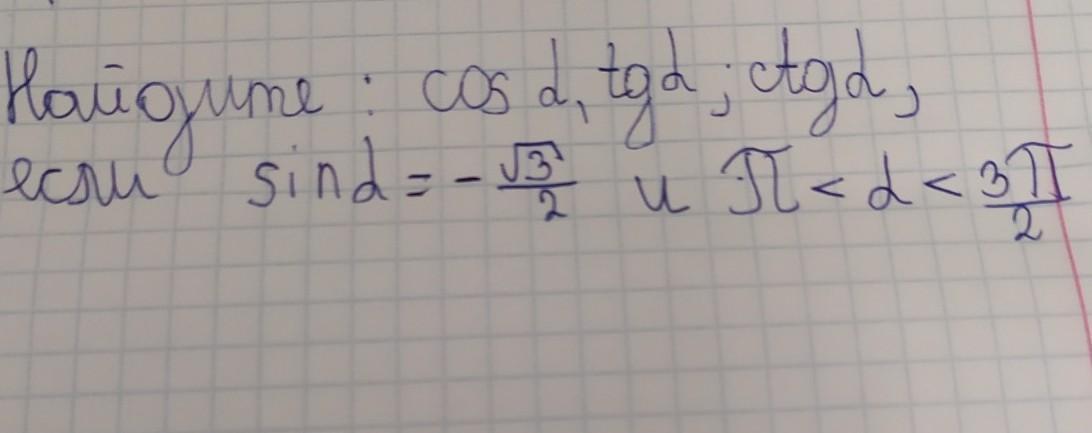 Найдите : cos α, tgα ; ctgα,
если sinα = -√3/2 и π < α < 3π/2